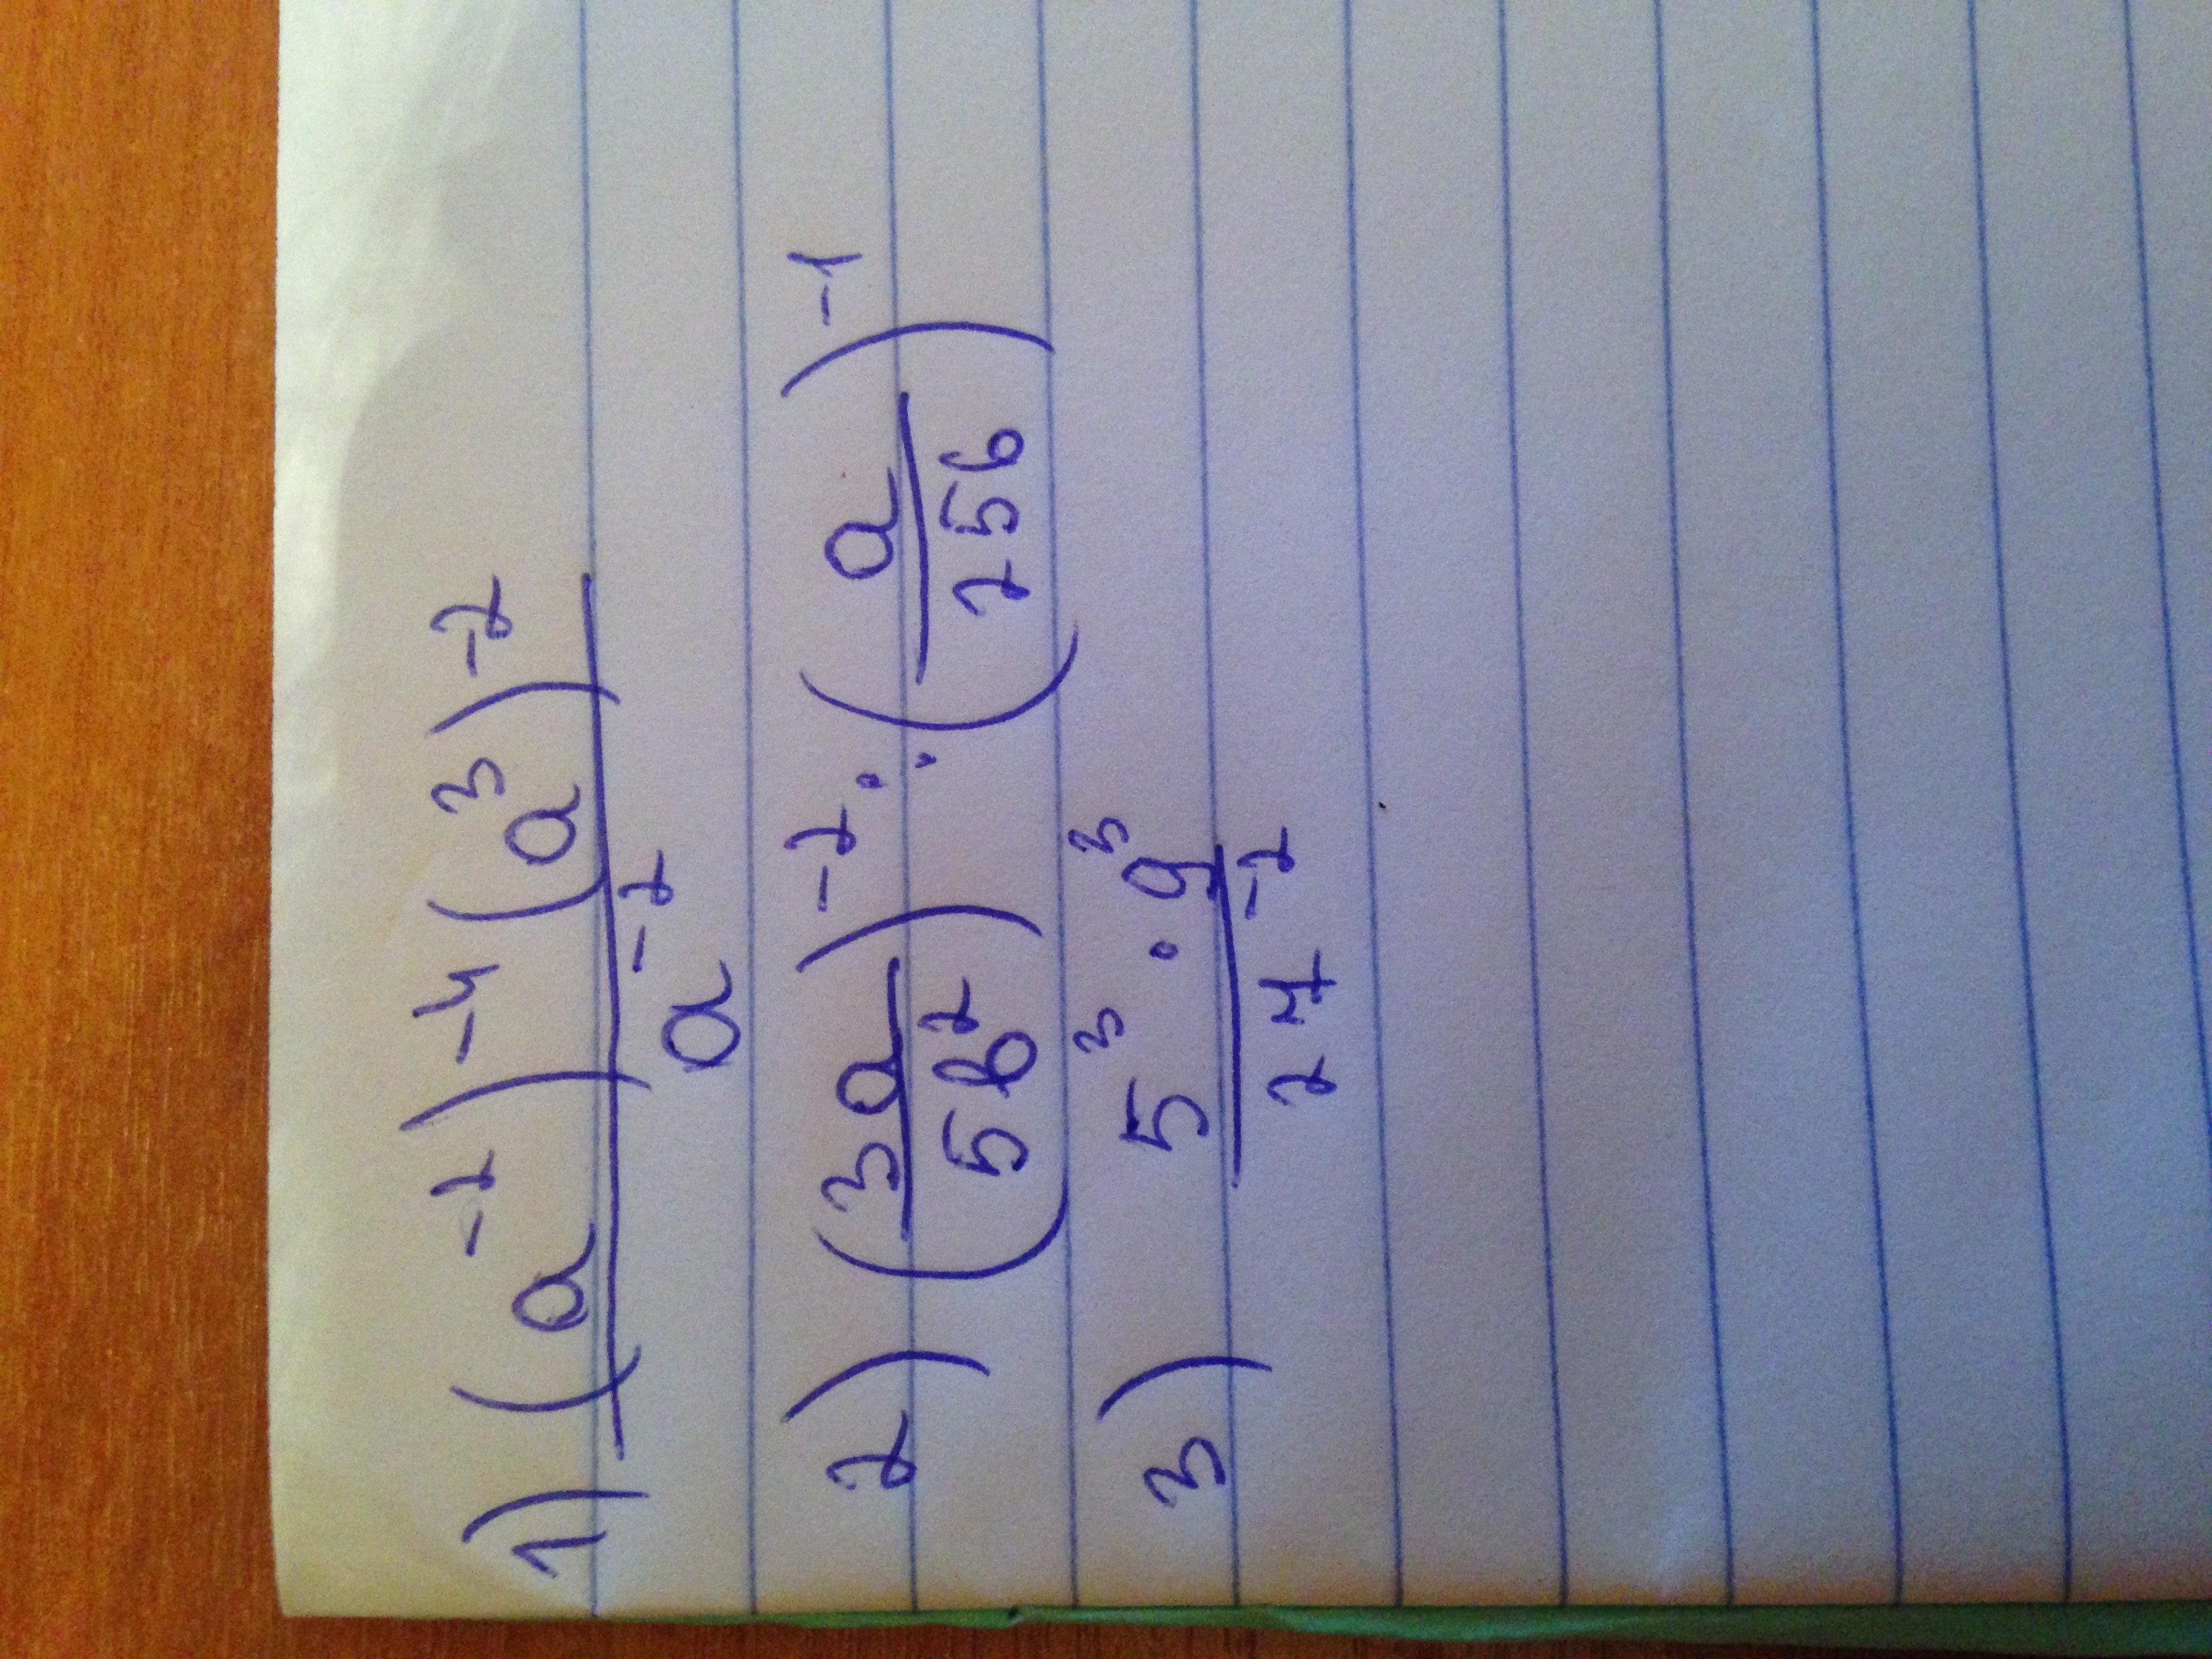 1) \frac{(a^{-2})^{-4} (a^3)^{-2}}{a^{-2}}
2) (\frac{3a}{5b^2})^{-2} : (\frac{a}{25b})^{-1}
3) \frac{5^3 \cdot 9^3}{24^{-2}}